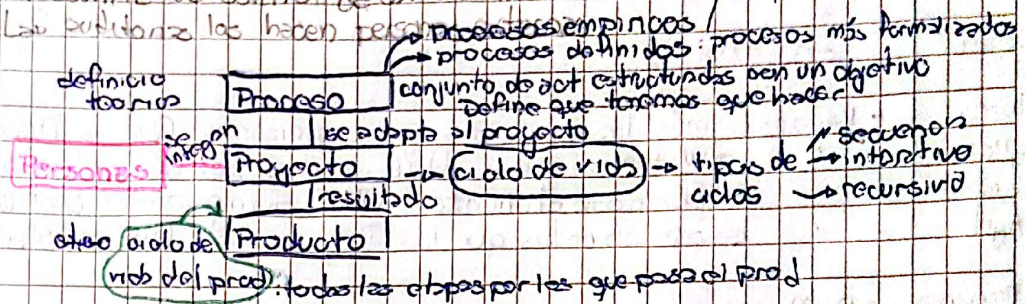 Las auditorias las hacen pers
procesos empiricos
procesos definidos: procesos más formalizados
definicio teorica
Proceso
conjunto de act estructuradas con un objetivo
Define que tenemos que hacer
se adapta al proyecto
Personas
se integran
Proyecto
ciclo de vida
tipos de ciclos
secuencia
interativo
recursivo
resultado
Producto
otro ciclo de vida del prod: todas las etapas por las que pasa el prod